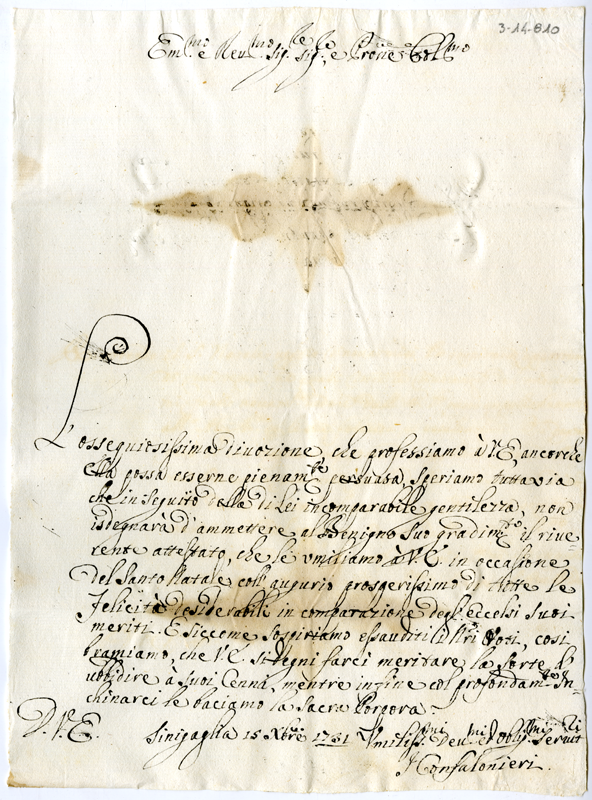 3-14-810
Em.mo e Rev.mo Sig.re Sig.re e Prone Col.mo
L'ossequiosissima divozione, che professiamo à V.E, ancorche
ella possa esserne pienam.te persuasa, speriamo tuttavia
che in seguito della di Lei incomparabile gentilezza, non
isdegnarà d'ammettere al Benigno suo gradim.to il rive=
rente attestato, che le umiliamo à V.E. in occasione
del Santo Natale coll'augurio prosperissimo di tutte le
Felicità desiderabili in comparazione degl'eccelsi suoi
meriti. E siccome sospiriamo essauditi li n̄ri Voti, così
bramiamo, che V.E. si degni farci meritare la sorte di
ubbidire à suoi Cenni, mentre in fine col profondam.te In=
chinarci le baciamo la Sacra Porpora
D. V.E. Sinigaglia 15 Xbre 1731 Umilss.mi Dev.mi et Oblig.mi Servit.ri
I Confalonieri.